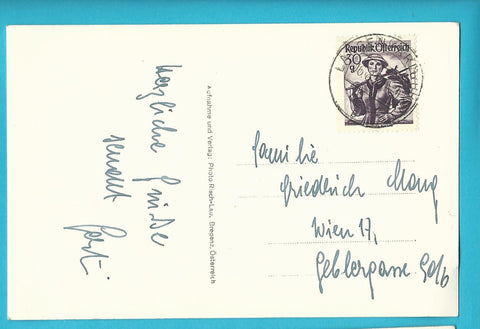 Herzliche Grüße
sendet
Aufnahme und Verlag: Photo Risch-Lau, Bregenz, Österreich
Republik Österreich
30
g
Familie
Friedrich
Wien 17,
Geblergasse